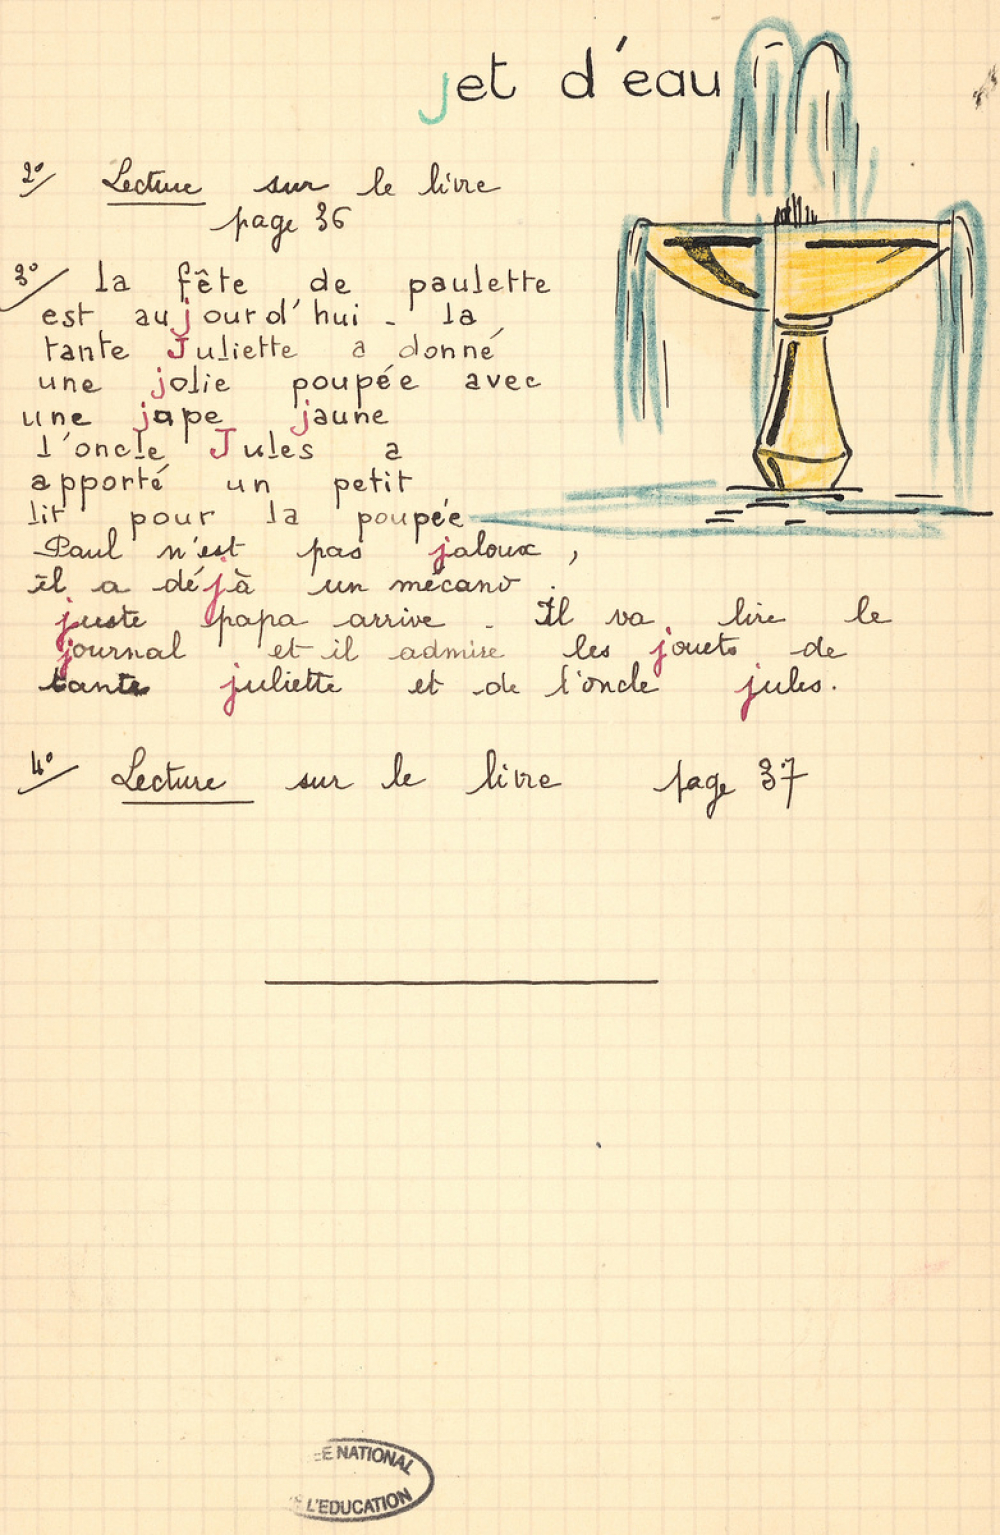 jet d'eau
2°/ Lecture sur le livre
page 36
3°/ la fête de paulette
est aujourd'hui - la
tante Juliette a donné
une jolie poupée avec
une jape jaune
l'oncle Jules a
apporté un petit
lit pour la poupée
Paul n'est pas jaloux,
il a déjà un mécano.
juste papa arrive - Il va lire le
journal et il admire les jouets de
tante juliette et de l'oncle jules.
4°/ Lecture sur le livre page 37
EE NATIONAL
L'EDUCATION